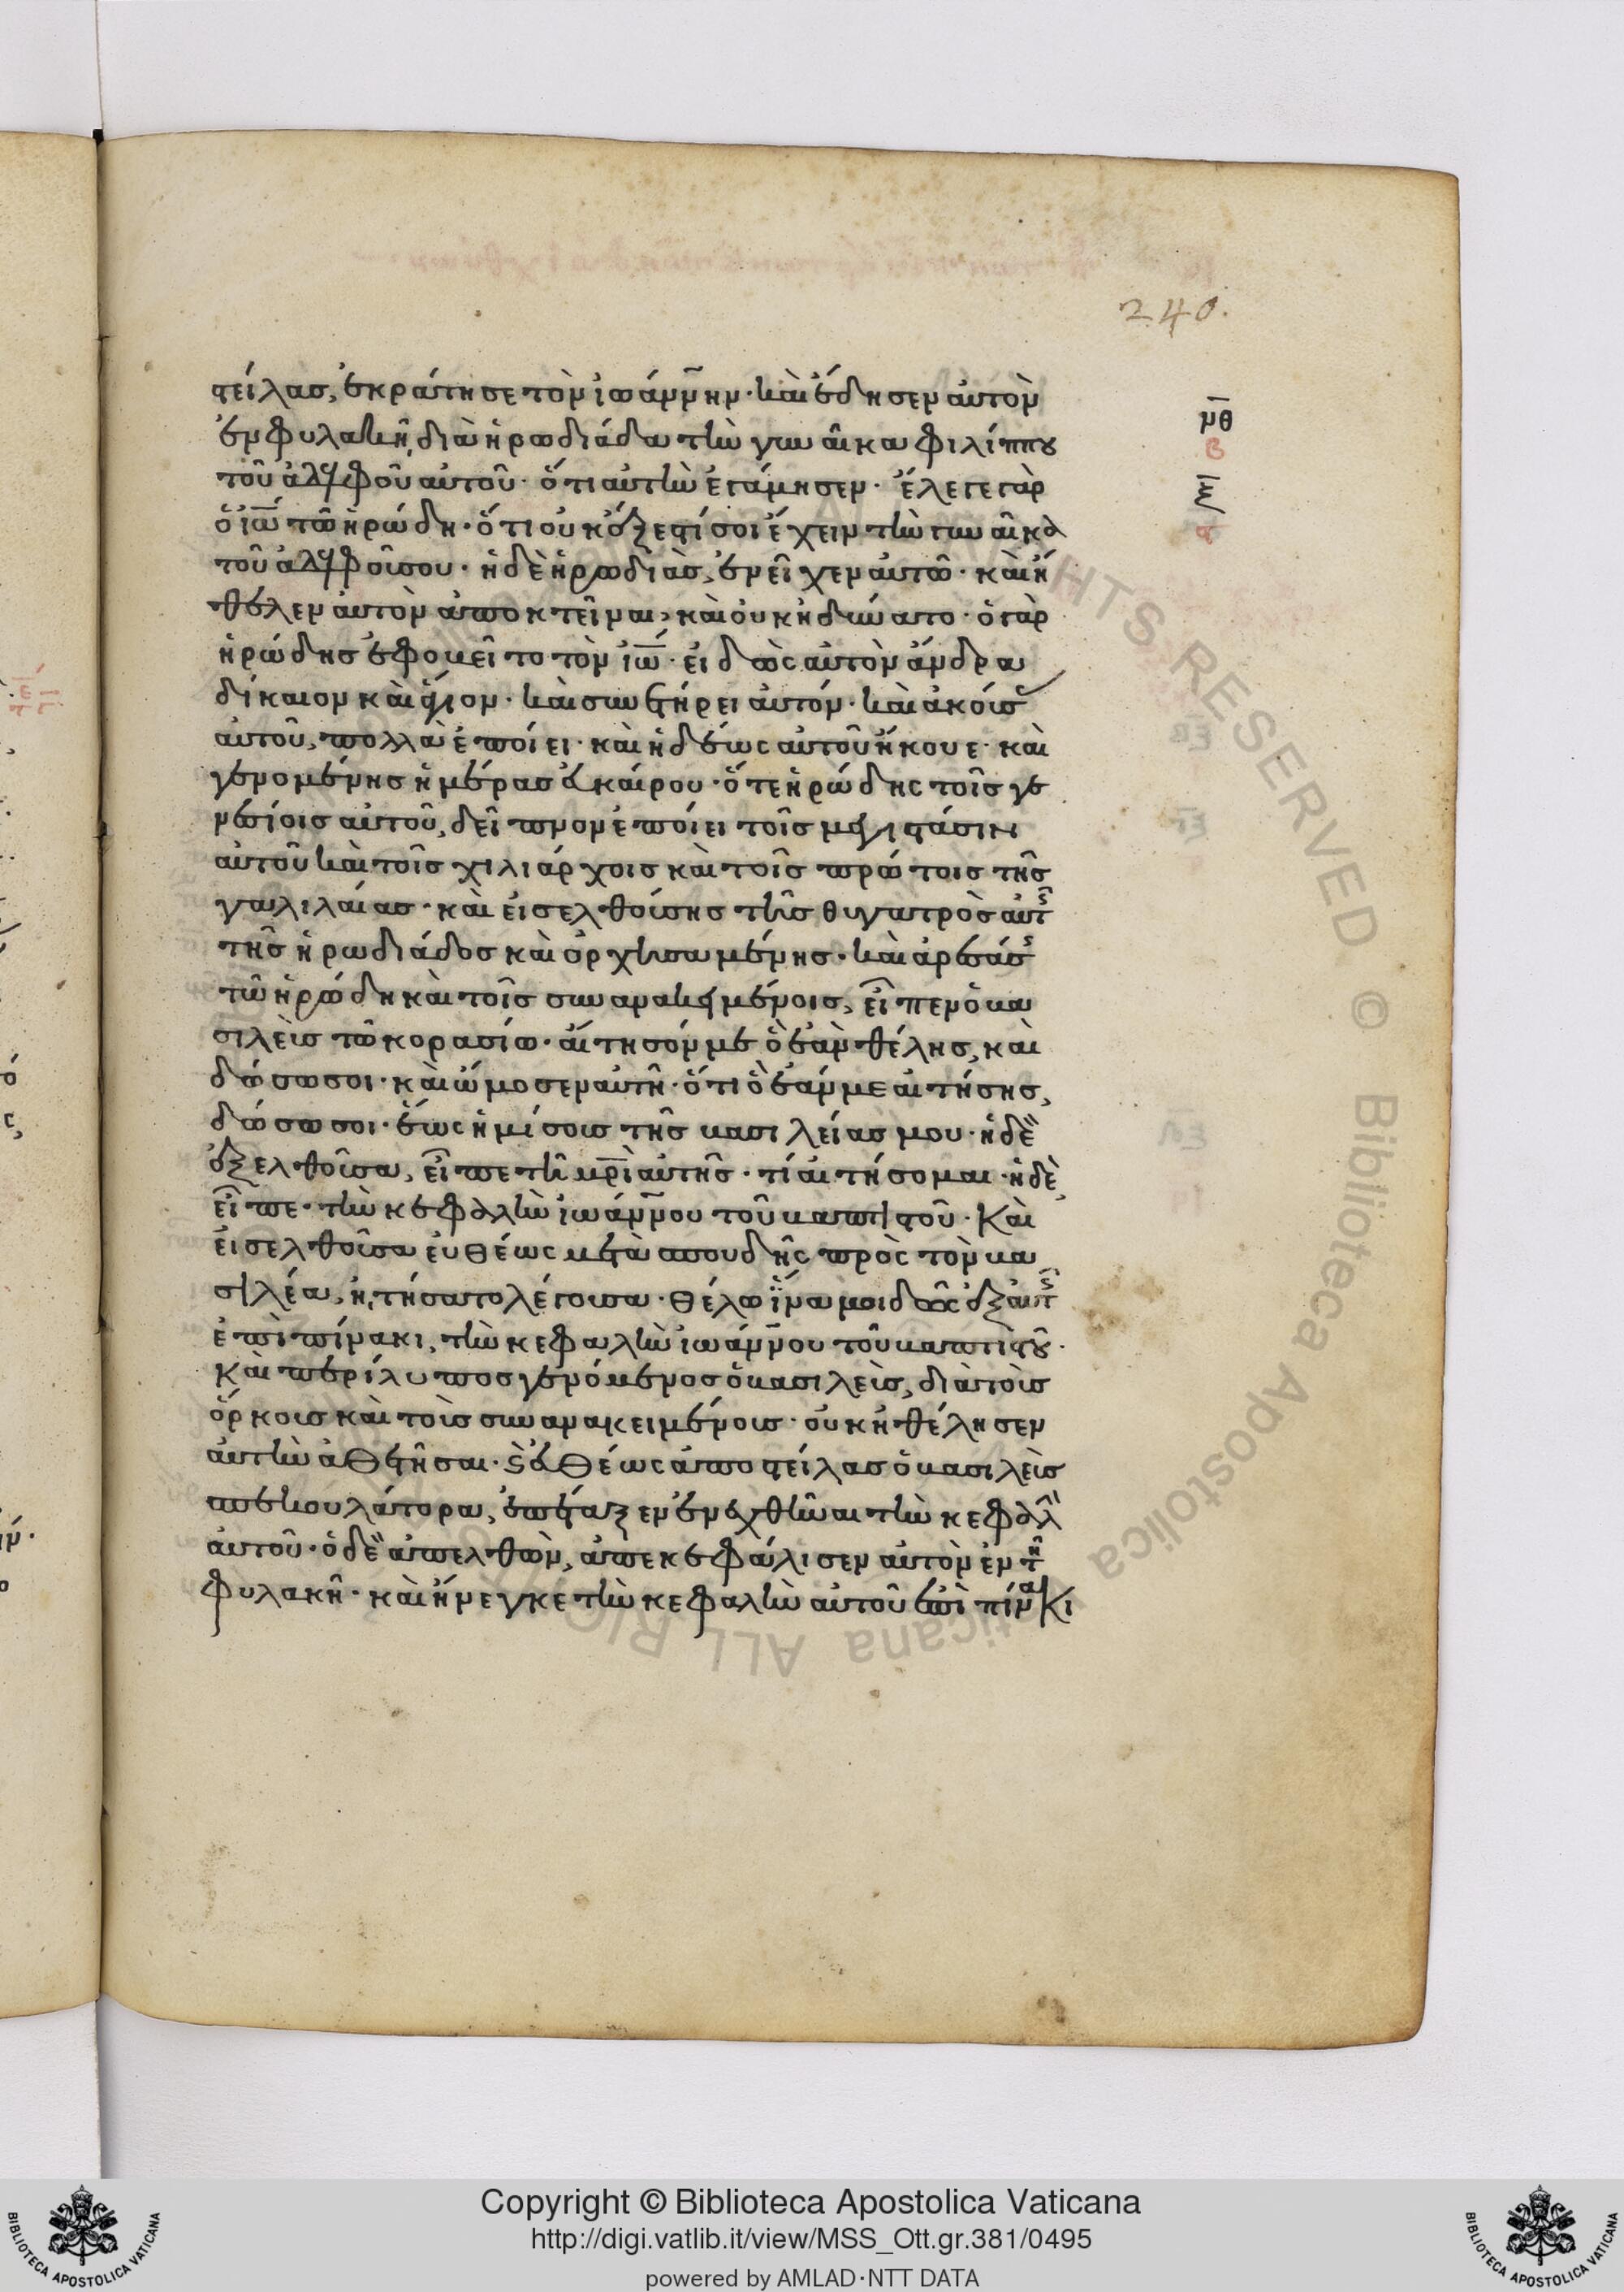 240.
τείλας, ἐκράτησε τὸν ἰωάννην· καὶ ἔδησεν αὐτὸν
ἐν φυλακῆ, διὰ ἡρωδιάδα τὴν γυναῖκα φιλίππου
τοῦ ἀδελφοῦ αὐτοῦ· ὅτι αὐτὴν ἐγάμησεν· ἔλεγε γὰρ
ὁ ἰω̅ τῶ ἡρώδη· ὅτι οὐκ ἔξεστί σοι ἔχειν τὴν γυναῖκα
τοῦ ἀδελφοῦ σου· ἡ δὲ ἡρωδιὰς, ἐνεῖχεν αὐτῶ· καὶ ἤ
θελεν αὐτὸν ἀποκτεῖναι, καὶ οὐκ ἠδύνατο· ὁ γὰρ
ἡρώδης ἐφοβεῖτο τὸν ἰω̅· εἰδὼς αὐτὸν ἄνδρα
δίκαιον καὶ ἅγιον· καὶ συνετήρει αὐτόν· καὶ ἀκούσ
αὐτοῦ, πολλὰ ἐποίει· καὶ ἡδέως αὐτοῦ ἤκουε· καὶ
γενομένης ἡμέρας εὐκαίρου· ὅτε ἡρώδης τοῖς γε
νεσίοις αὐτοῦ, δεῖπνον ἐποίει τοῖς μεγιστάσιν
αὐτοῦ καὶ τοῖς χιλιάρχοις καὶ τοῖς πρώτοις τῆς
γαλιλαίας· καὶ εἰσελθούσης τῆς θυγατρὸς αὐτ
τῆς ἡρωδιάδος καὶ ὀρχησαμένης· καὶ ἀρεσάσ
τῶ ἡρώδη καὶ τοῖς συνανακειμένοις, εἶπεν ὁ βα
σιλεὺς τῶ κορασίω· αἴτησόν με ὃ ἐὰν θέλης, καὶ
δώσω σοι· καὶ ὤμοσεν αὐτῆ· ὅτι ὃ ἐάν με αἰτήσης,
δώσω σοι· ἕως ἡμίσους τῆς βασιλείας μου· ἡ δὲ
ἐξελθοῦσα, εἶπε τῆ μρ̅ὶ αὐτῆς· τί αἰτήσομαι· ἡ δὲ,
εἶπε· τὴν κεφαλὴν ἰωάννου τοῦ βαπτιστοῦ· Καὶ
εἰσελθοῦσα εὐθέως μετὰ σπουδῆς πρὸς τὸν βα
σιλέα, ἠτήσατο λέγουσα· θέλω ἵνα μοι δῶς ἐξ αὐτ
ἐπὶ πίνακι, τὴν κεφαλὴν ἰωάννου τοῦ βαπτιστοῦ·
Καὶ περίλυπος γενόμενος ὁ βασιλεὺς, διὰ τοὺς
ὅρκους καὶ τοὺς συνανακειμένους· οὐκ ἠθέλησεν
αὐτὴν ἀθετῆσαι· ϗ εὐθέως ἀποστείλας ὁ βασιλεὺς
σπεκουλάτορα, ἐπέταξεν ἐνεχθῆναι τὴν κεφαλ
αὐτοῦ· ὁ δὲ ἀπελθὼν, ἀπεκεφάλισεν αὐτὸν ἐν τῆ
φυλακῆ· καὶ ἤνεγκε τὴν κεφαλὴν αὐτοῦ ἐπὶ πίνακι
νθ
β
Copyright © Biblioteca Apostolica Vaticana
http://digi.vatlib.it/view/MSS_Ott.gr.381/0495
powered by AMLAD·NTT DATA
BIBLIOTECA APOSTOLICA VATICANA
BIBLIOTECA APOSTOLICA VATICANA
Biblioteca Apostolica Vaticana ALL RIGHTS RESERVED ©